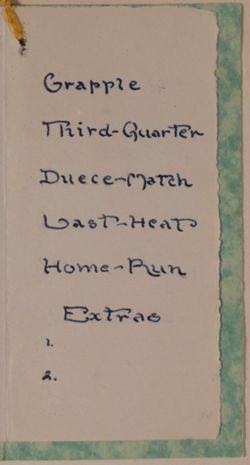 Grapple
Third-Quarter
Duece-Match
Last-Heat
Home-Run
Extras
1.
2.